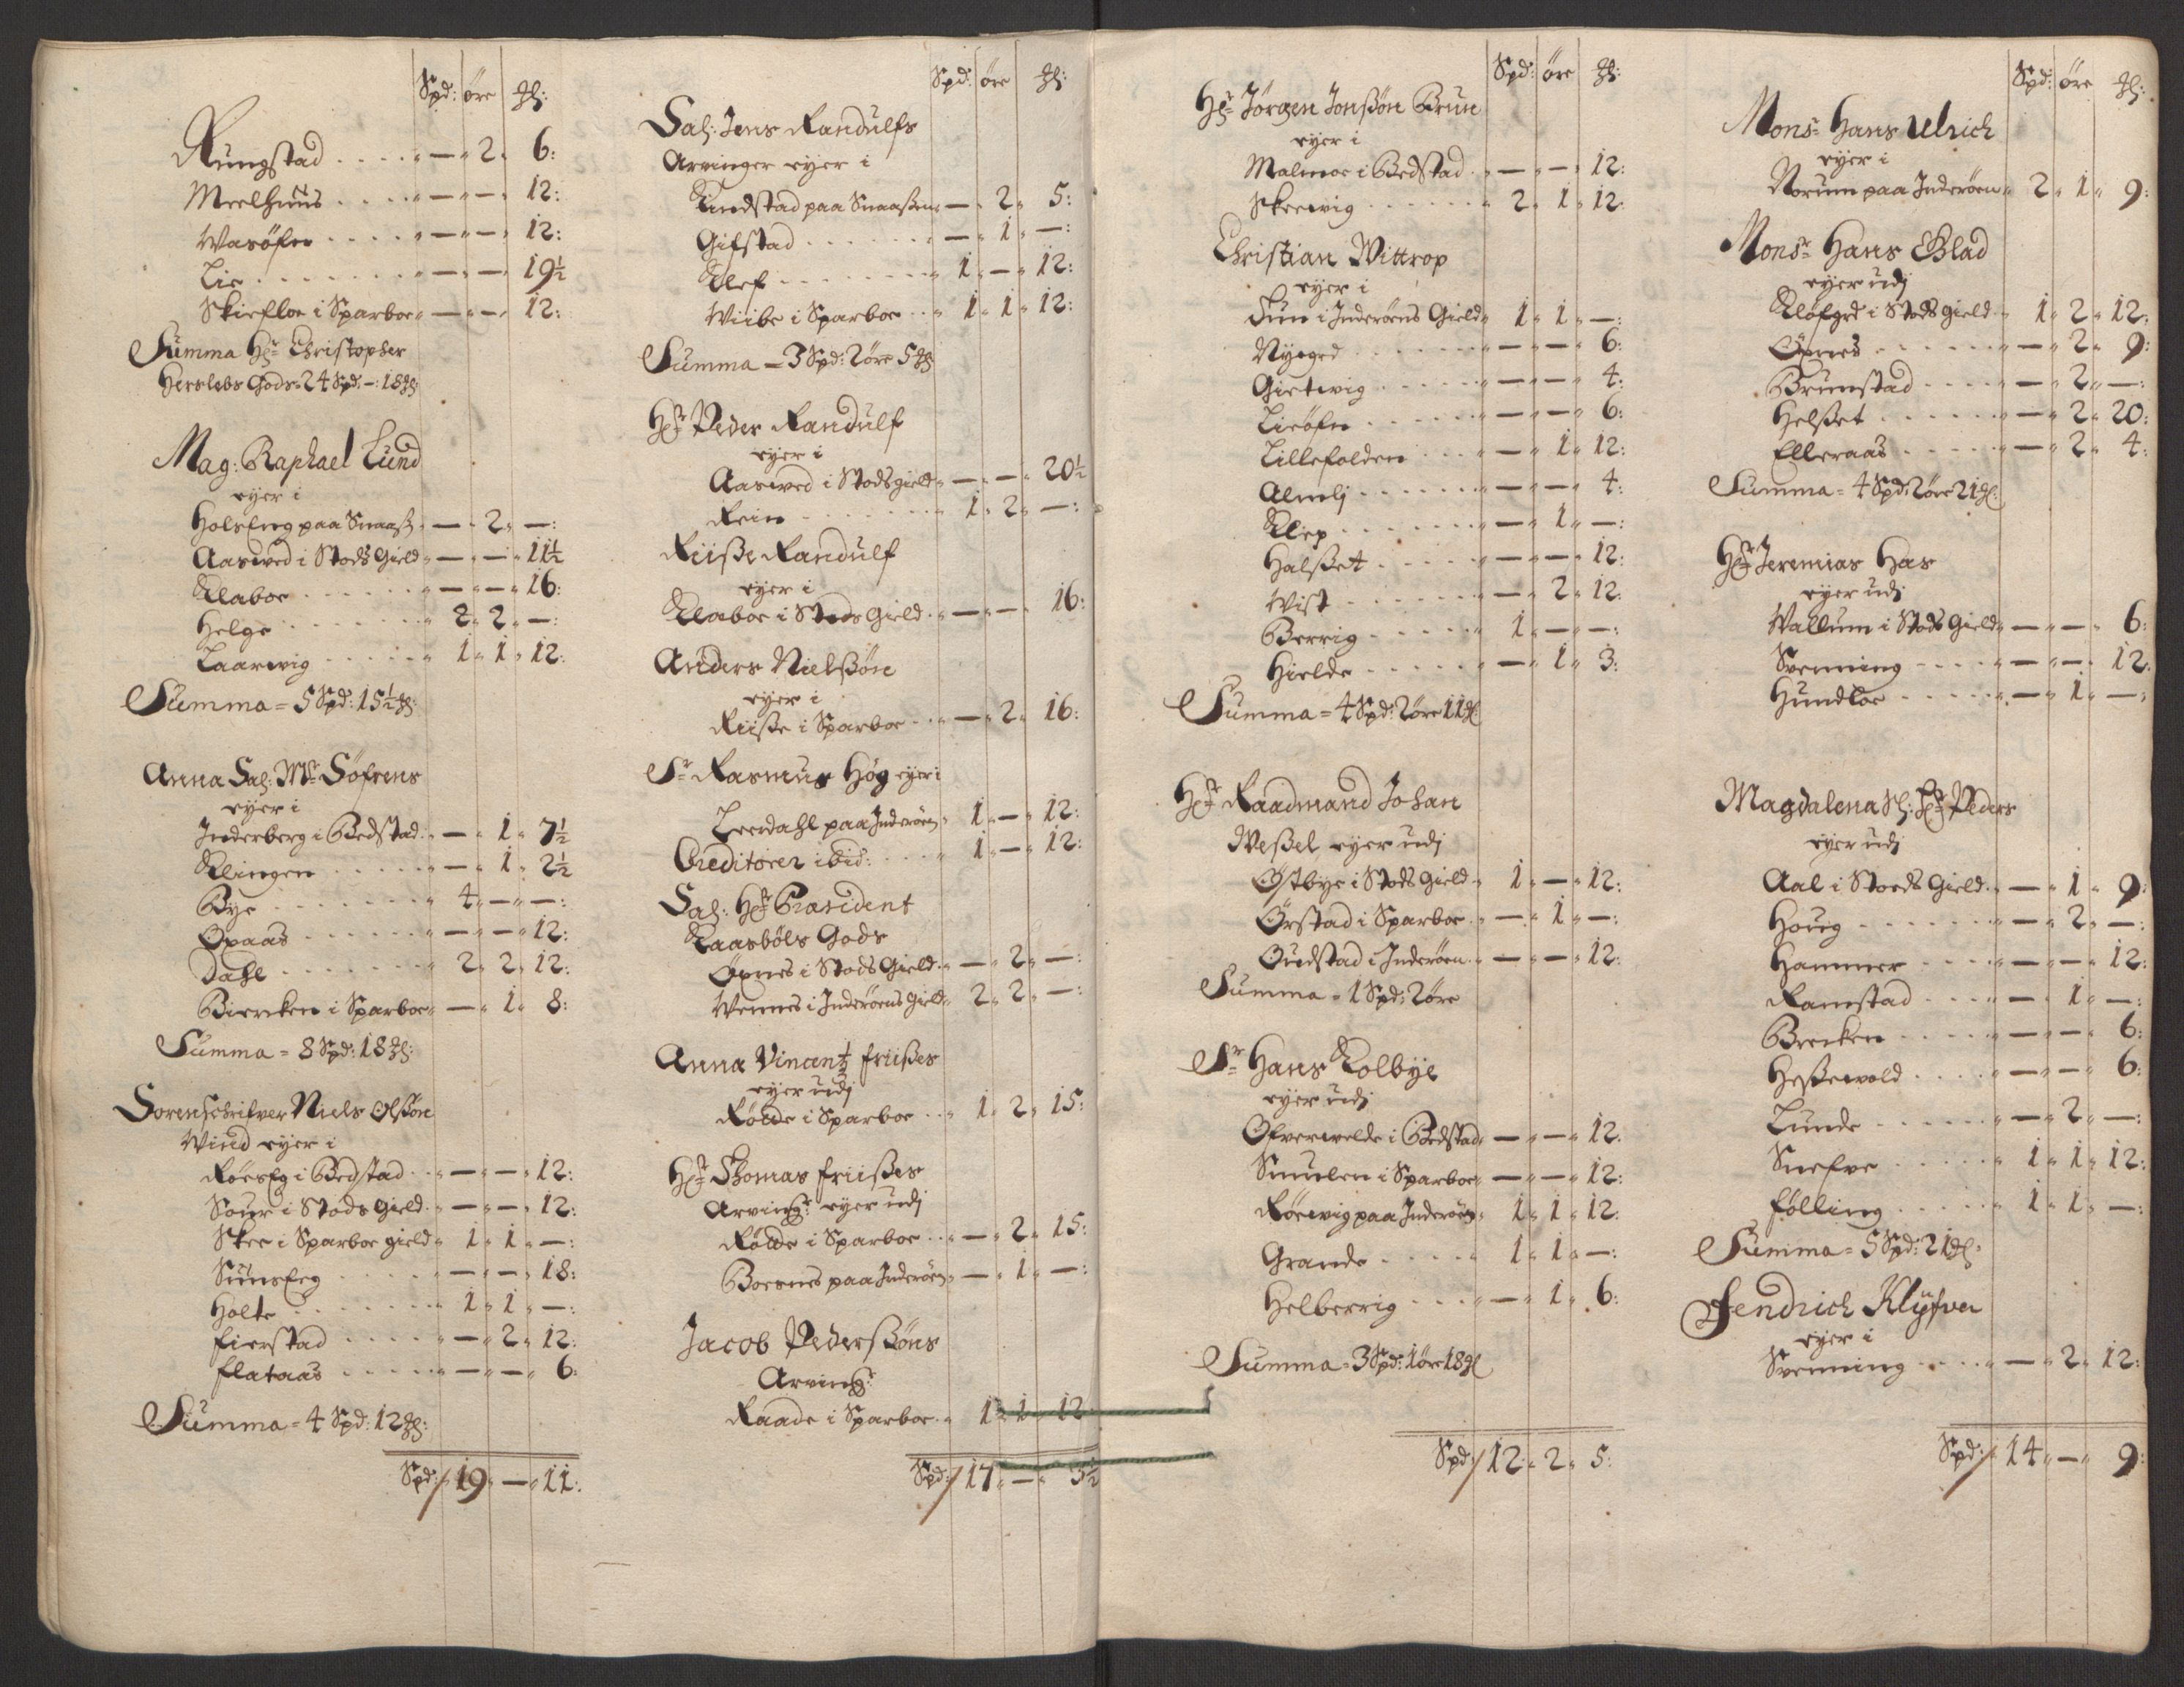 Spd: öre ꝑ:
Rungstad . . . . — 2. 6:
Meelhuus . . . . — — 12:
Wasöfn . . . . — — 12:
Lie . . . . — — 19½
Skieflo i Sparboe — — 12:
Summa Hr Christopher
Herslebs Gods = 24 Spd. — : 18
Mag: Raphael Lund
eyer i
Holseng paa Snaass — 2. —:
Aasved i Stods Gield — — 11½
Klaboe . . . . — — 16:
Helge . . . . 2. 2. —:
Laarwig . . . . 1. 1. 12:
Summa = 5 Spd: 15½
Anna Sal: Mr Söfrens
eyer i
Inderberg i Bedstad — 1. 7½
Klingen . . . . — 1. 2½
Bye . . . . 4. — —:
Opaas . . . . — — 12:
Dahl . . . . 2. 2. 12:
Biercken i Sparboe — 1. 8:
Summa = 8 Spd: 18
Sorenschrifver Niels Olssön
Wind eyer i
Röeseg i Bedstad . . — — 12:
Sour i Stods Gield — — 12:
Skee i Sparboe gield 1. 1. —:
Sunseg . . . . — — 18:
Holte . . . . 1. 1. —:
Fierstad . . . . — 2. 12:
Flataas . . . . — — 6:
Summa = 4 Spd: 12
Spd: / 19. — 11:
Spd: öre
Sal: Jens Randulfs
Arvinger eyer i
Kindstad paa Snaassen — 2. 5:
Gifstad . . . . — 1. —:
Klef . . . . 1. — 12:
Wiibe i Sparboe . . 1. 1. 12:
Summa — 3 Spd: 2 öre 5
Hr Peder Randulf
eyer i
Aasved i Stods gield — — 20½
Rein . . . . 1. 2. —:
Riisse Randulf
eyer i
Klaboe i Stods Gield — — 16:
Anders Nielssön
eyer i
Riisse i Sparboe . . — 2. 16:
Sr Rasmus Hög eyer i
Leerdahl paa Inderöen 1. — 12:
Creditorer ibid: . . . 1. — 12:
Sal: Hr Præsident
Kaasböls Gods
Öxnes i Stods Gield — 2. —:
Wennes i Inderöens Gield 2. 2. —:
Anna Vincentz Friisses
eyer udj
Rölde i Sparboe . . 1. 2. 15:
Hr Thomas Friisses
Arving: eyer udj
Rölde i Sparboe . . — 2. 15:
Boesnes paa Inderöen — 1. —:
Jacob Pederssöns
Arving:
Raade i Sparboe . 1. 1. 12
Spd: / 17. — 5½
Spd: öre
Hr Jörgen Jonssön Brun
eyer i
Malmoe i Bedstad . — — 12:
Skeewig . . . . 2. 1. 12:
Christian Wittrop
eyer i
Sun i Inderöens Gield 1. 1. —:
Nygrd . . . . — — 6:
Gietwig . . . . — — 4:
Lieöfn . . . . — — 6:
Lillefolden . . . — 1. 12:
Almlj . . . . — — 4:
Klep . . . . — 1. —:
Halsset . . . . — — 12:
Wist . . . . — 2. 12:
Berrig . . . . 1. — —:
Hielde . . . . — 1. 3:
Summa = 4 Spd: 2 öre 11
Hr Raadmand Johan
Wessel eyer udj
Östbye i Stods Gield . 1. — 12:
Örstad i Sparboe . — 1. —:
Oudstad i Inderöen — — 12:
Summa = 1 Spd: 2 öre
Sr Hans Kolbye
eyer udj
Ofverwelde i Bedstad — — 12:
Smulen i Sparboe — — 12:
Röewig paa Inderöen 1. 1. 12:
Grande . . . . 1. 1. —:
Helberrig . . . — 1. 6:
Summa = 3 Spd: 1 öre 18
Spd: / 12. 2. 5:
Spd: öre
Monsr Hans Ulrich
eyer i
Norum paa Inderöen 2. 1. 9:
Monsr Hans Blad
eyer udj
Klöfgrd i Stods gield 1. 2. 12:
Öxnes . . . . — 2. 9:
Brunstad . . . . — 2. —:
Helsset . . . . — 2. 20:
Elleraas . . . . — 2. 4:
Summa = 4 Spd: 2 öre 21
Hr Jeremias Has
eyer udj
Wallum i Stods Gield — — 6:
Svenning . . . . — — 12:
Hundloe . . . . — 1. —:
Magdalena Sl: Hr Peders
eyer udj
Aal i Stods Gield . — 1. 9:
Houg . . . . — 2. —:
Hammer . . . . — — 12:
Ramstad . . . . — 1. —:
Brecken . . . . — — 6:
Hessewold . . . . — — 6:
Lunde . . . . — 2. —:
Snefve . . . . 1. 1. 12:
Fölling . . . . 1. 1. —:
Summa = 5 Spd: 21
Fendrich Klyfver
eyer i
Svenning . . . . — 2. 12:
Spd: / 14. — 9: